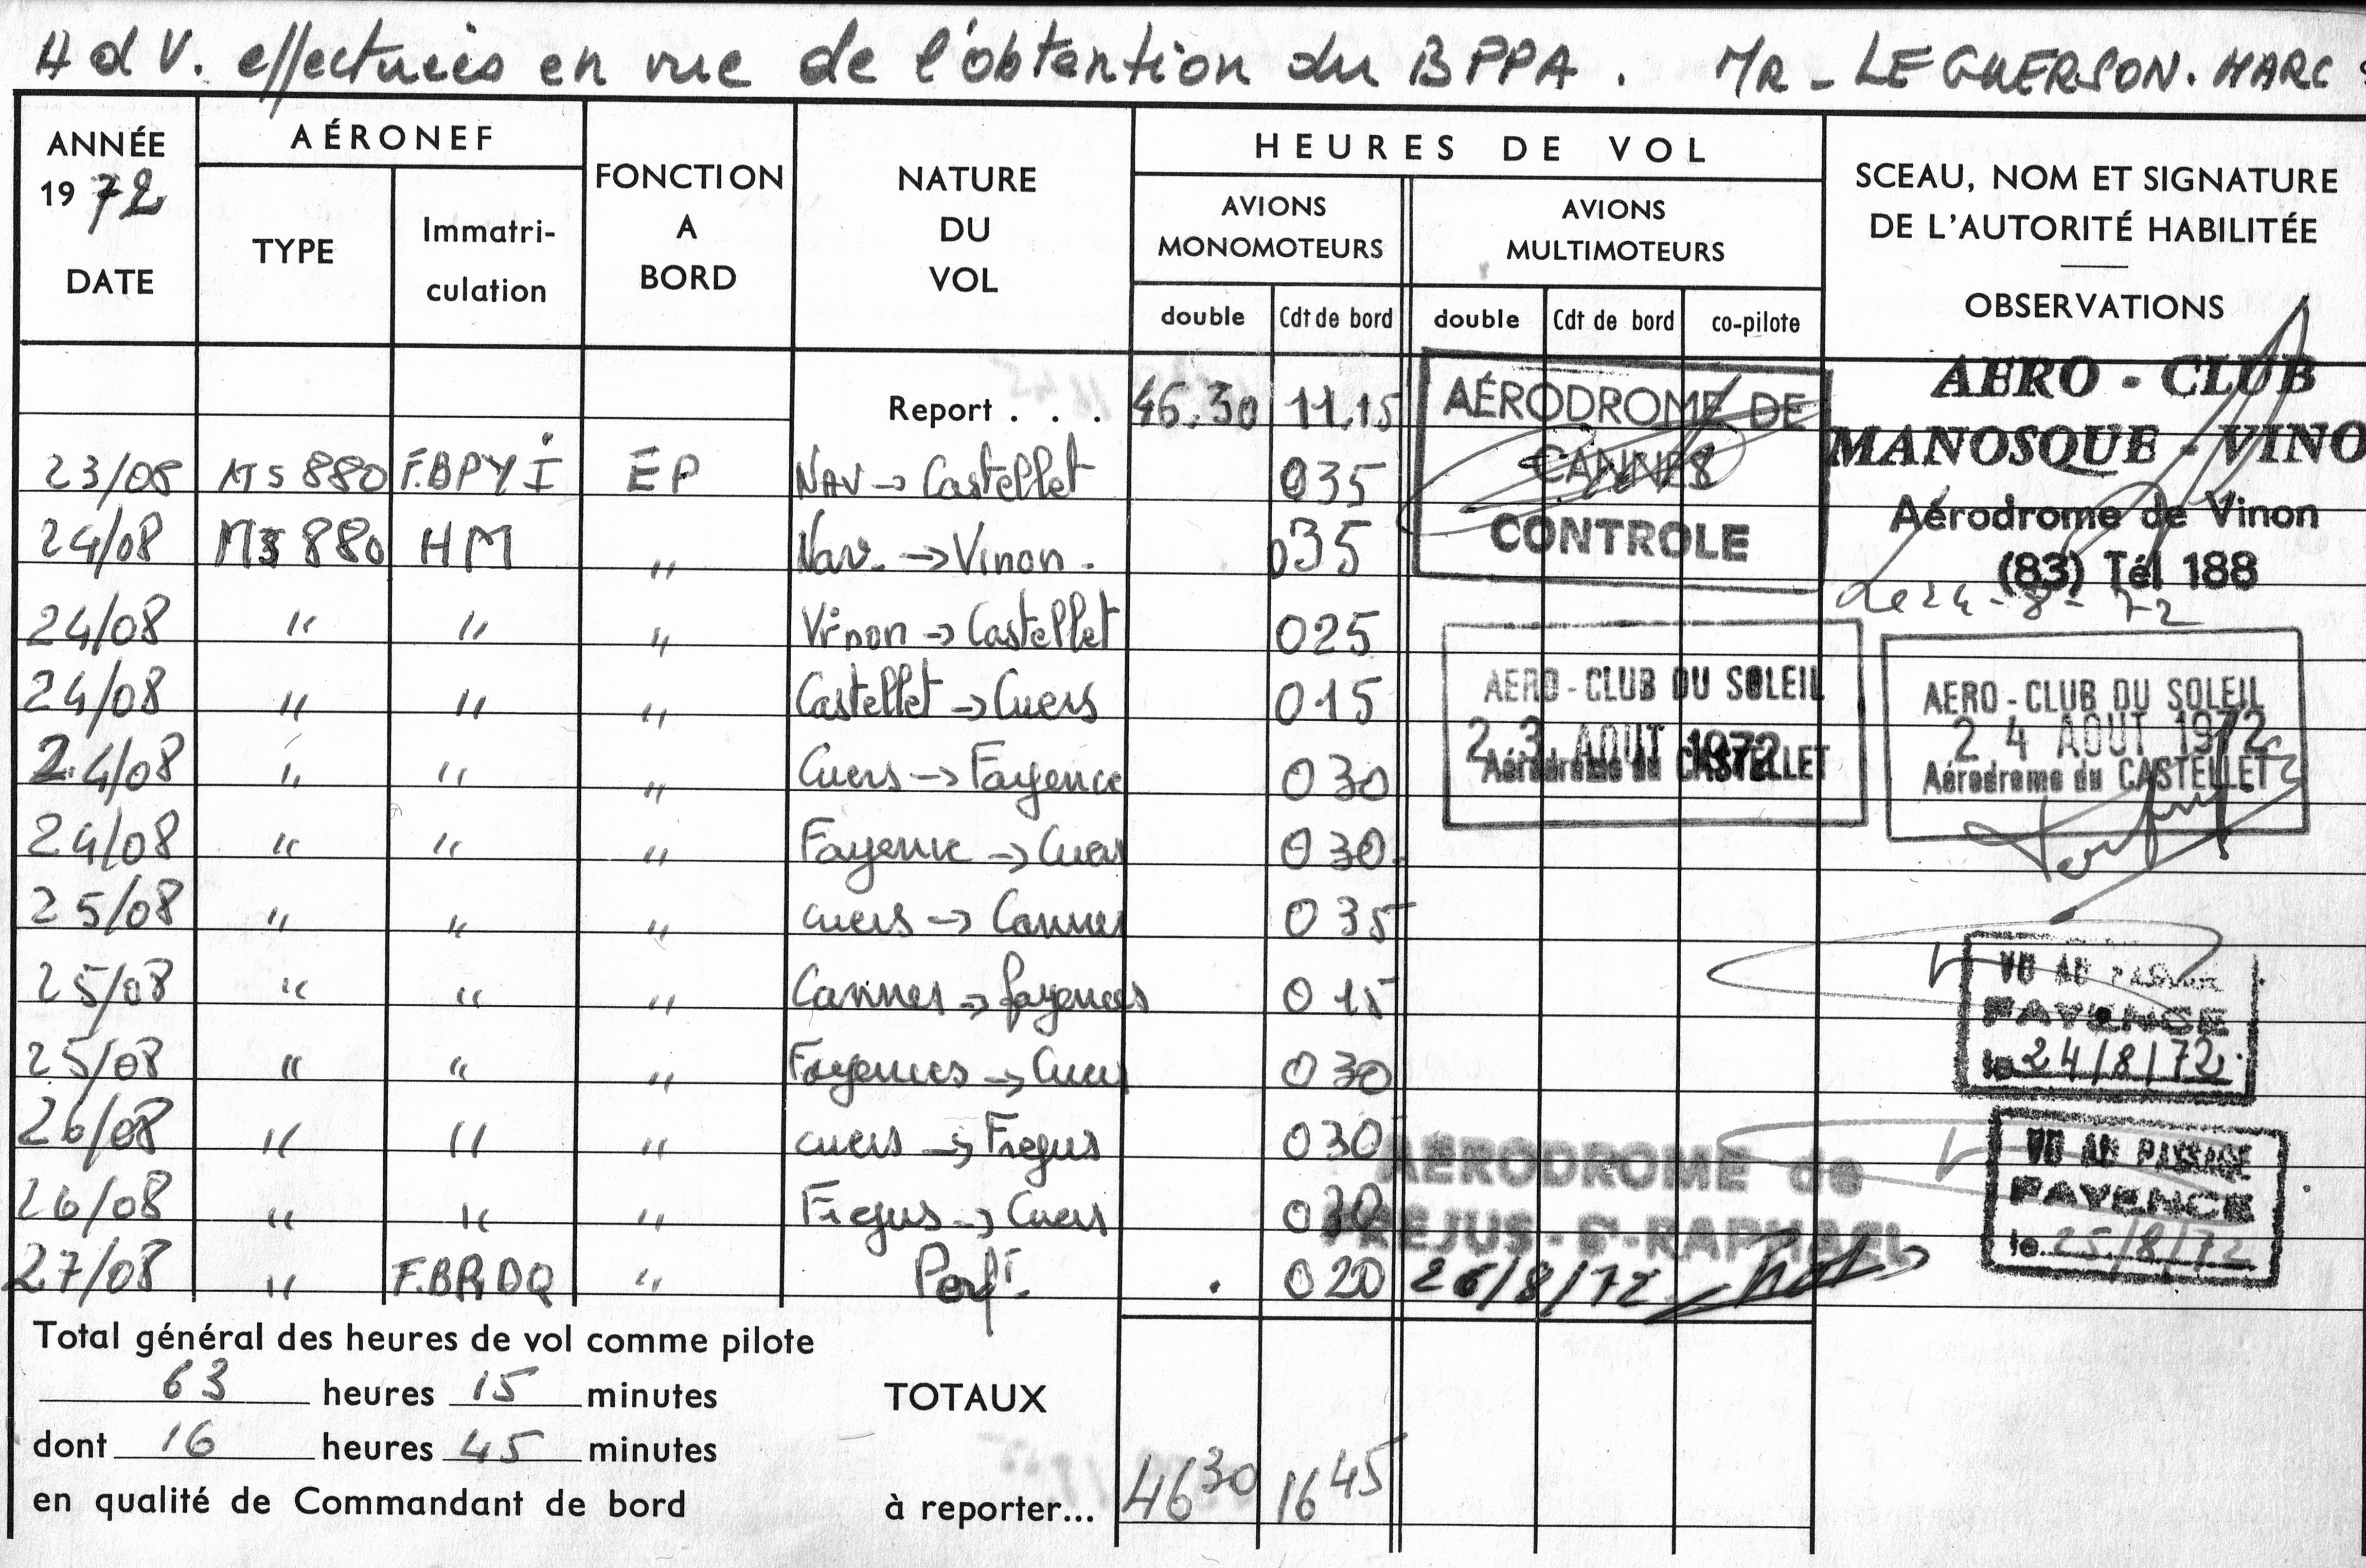 H d V. effectuées en vue de l'obtention du BPPA. MR - LE GUERSON. MARC
ANNÉE
1972
DATE
AÉRONEF
TYPE
Immatri-
culation
FONCTION
A
BORD
NATURE
DU
VOL
HEURES DE VOL
AVIONS
MONOMOTEURS
double Cdt de bord
AVIONS
MULTIMOTEURS
double Cdt de bord co-pilote
SCEAU, NOM ET SIGNATURE
DE L'AUTORITÉ HABILITÉE
OBSERVATIONS
Report . . . 46.30 11.15
23/08 MS 880 F.BPYI EP NAV → Castellet 035
24/08 MS 880 HM " Nav. → Vinon. 035
24/08 " " " Vinon → Castellet 025
24/08 " " " Castellet → Cuers 015
24/08 " " " Cuers → Fayence 030
24/08 " " " Fayence → Cuers 030
25/08 " " " Cuers → Cannes 035
25/08 " " " Cannes → fayences 015
25/08 " " " Fayences → Cuers 030
26/08 " " " cuers → Frejus 030
26/08 " " " Frejus → Cuers 030
27/08 " F.BRDQ " Perft. 020
AÉRODROME DE
CANNES
CONTROLE
AERO - CLUB
MANOSQUE - VINO
Aérodrome de Vinon
(83) Tél 188
Le 24 - 8 - 72
AERO - CLUB DU SOLEIL
23 AOUT 1972
Aérodrome du CASTELLET
AERO - CLUB DU SOLEIL
24 AOUT 1972
Aérodrome du CASTELLET
VU AU PASSAGE
FAYENCE
le 24/8/72
VU AU PASSAGE
FAYENCE
le 25/8/72
AÉRODROME de
FREJUS - St-RAPHAEL
26/8/72
Total général des heures de vol comme pilote
63 heures 15 minutes
dont 16 heures 45 minutes
en qualité de Commandant de bord
TOTAUX
à reporter... 46 30 16 45